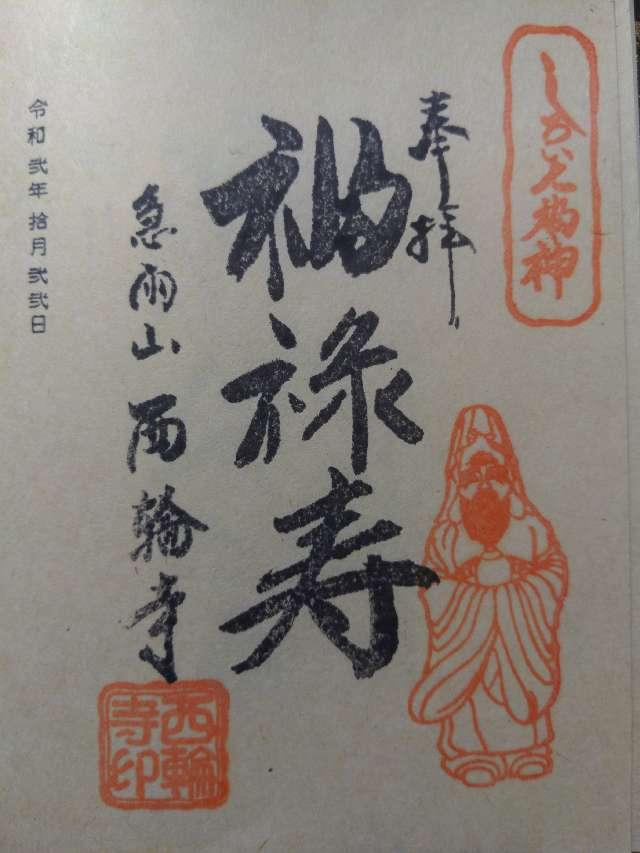 福神
奉拝
福禄寿
急雨山 西輪寺
令和弐年拾月弐弐日
西輪
寺印